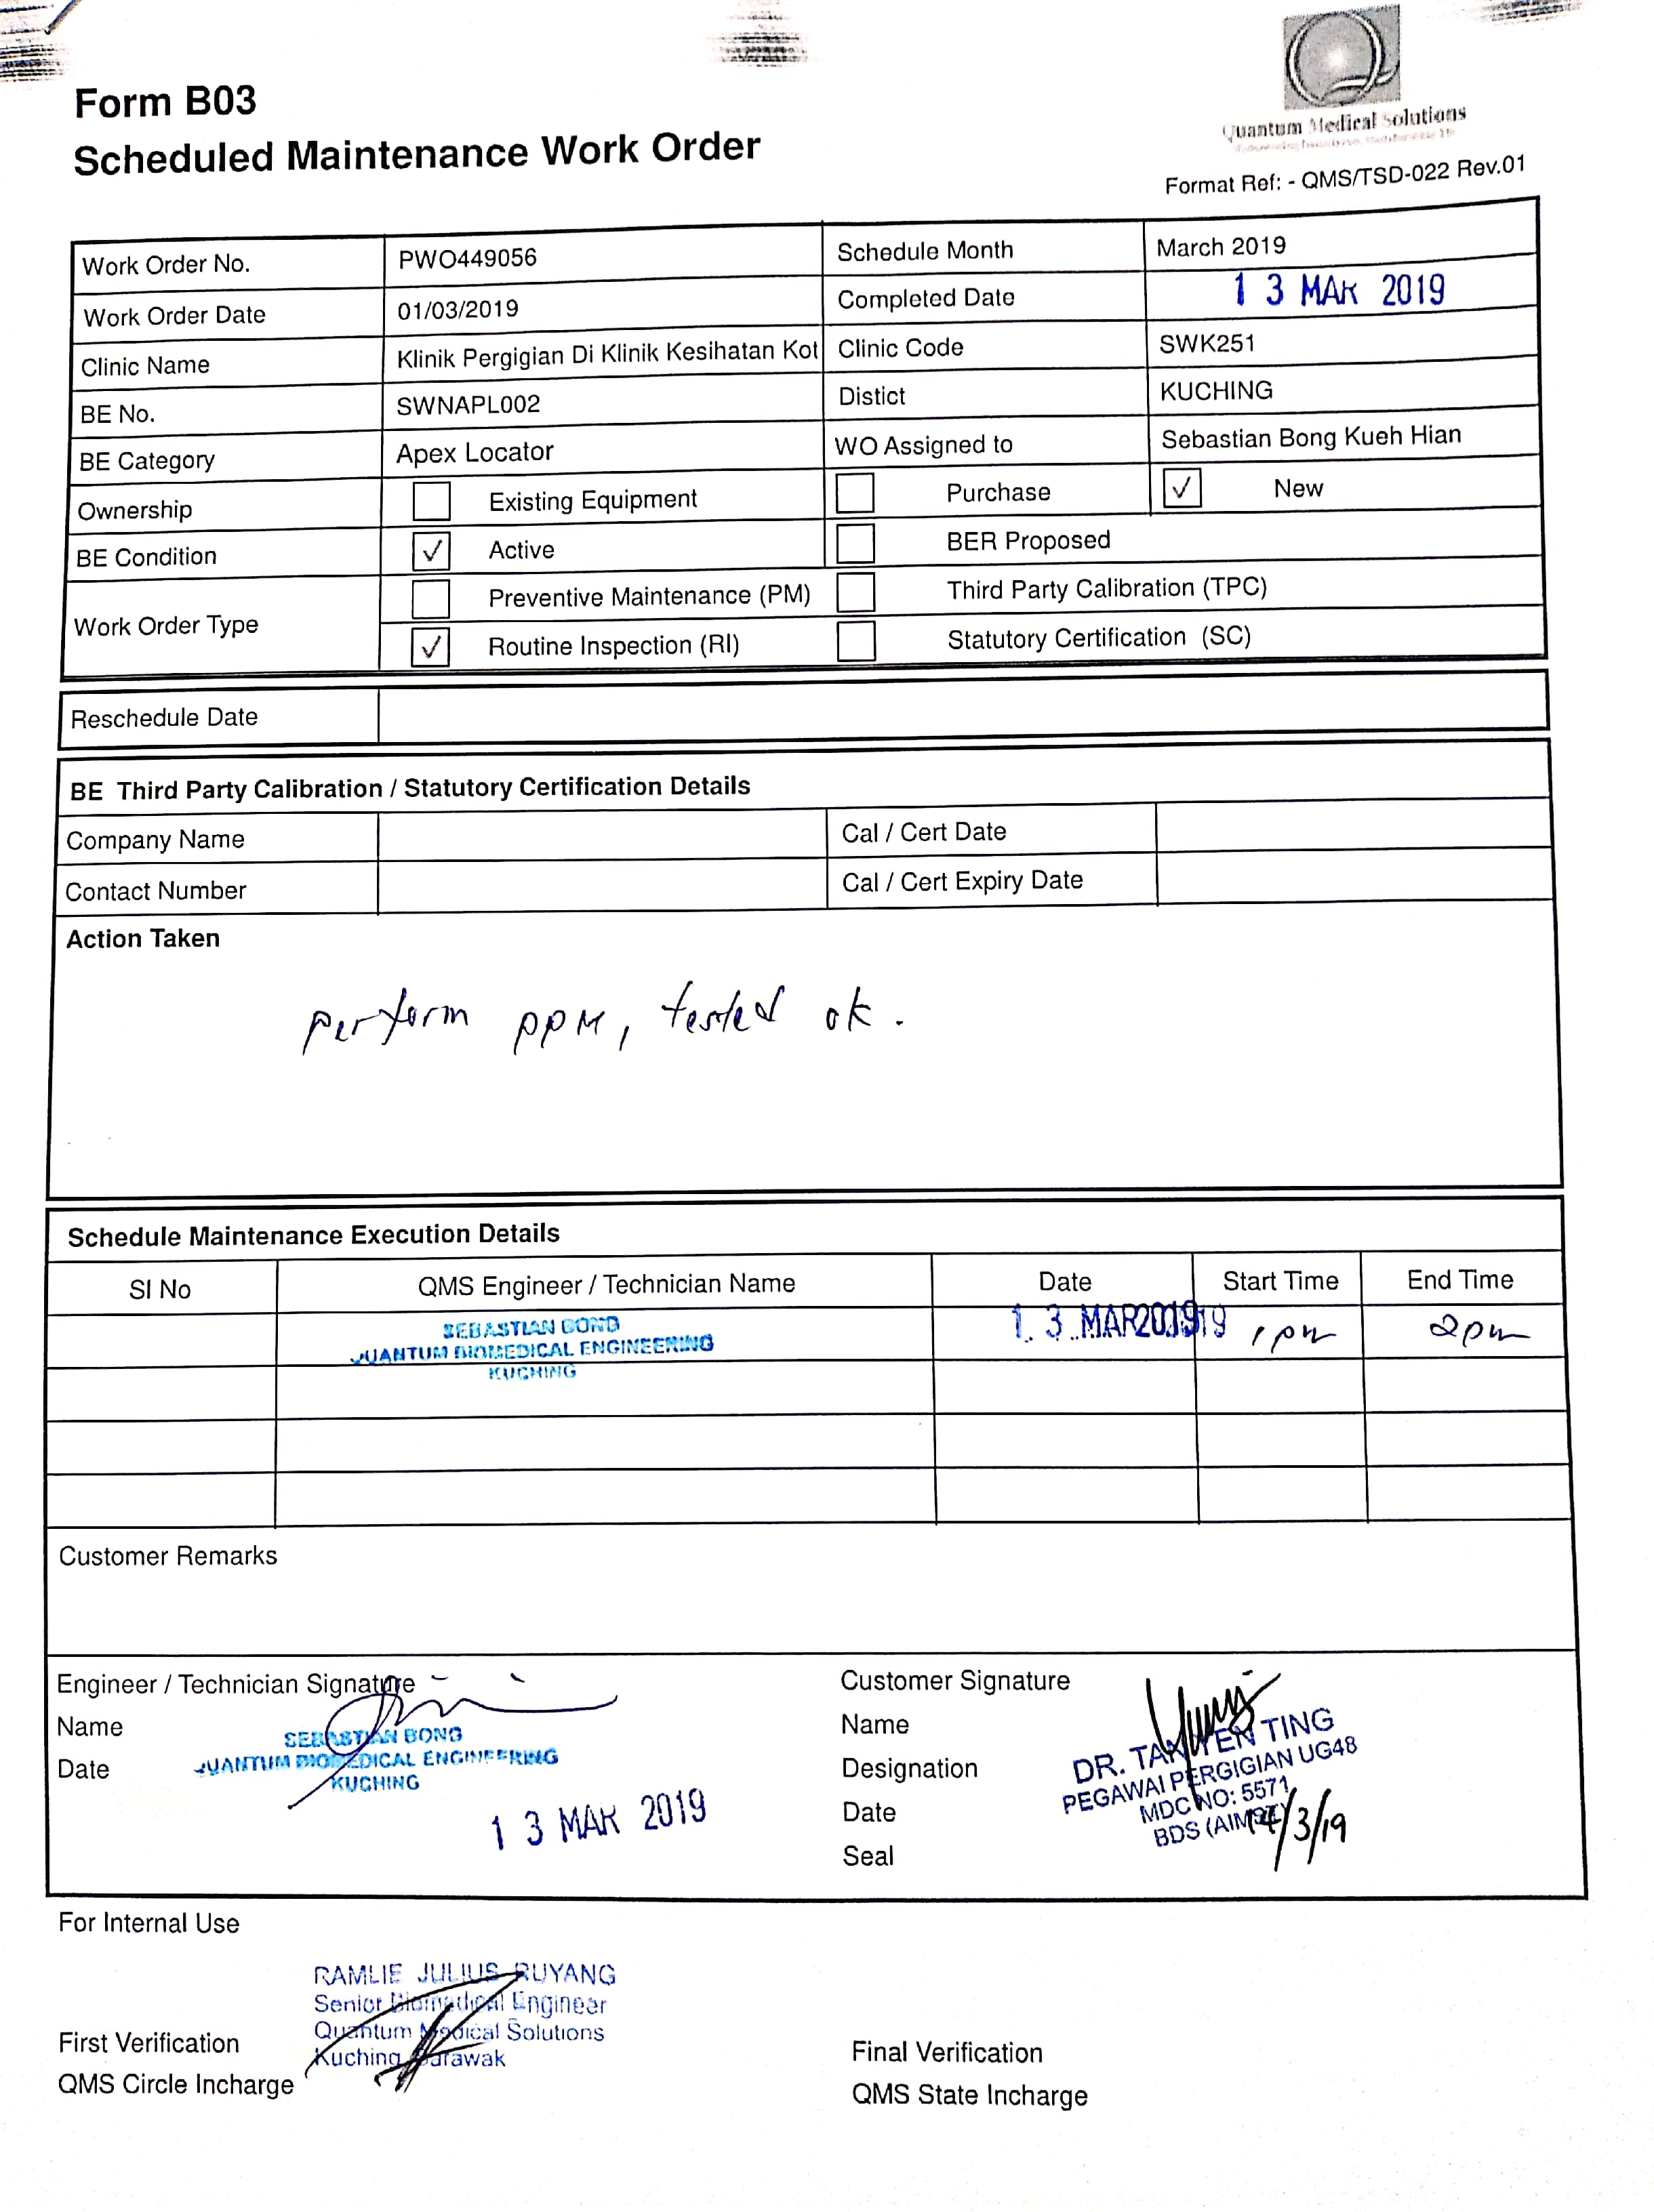 Form B03
Scheduled Maintenance Work Order
Quantum Medical Solutions
Format Ref: - QMS/TSD-022 Rev.01
Work Order No. PWO449056 Schedule Month March 2019
Work Order Date 01/03/2019 Completed Date 13 MAR 2019
Clinic Name Klinik Pergigian Di Klinik Kesihatan Kot Clinic Code SWK251
BE No. SWNAPL002 Distict KUCHING
BE Category Apex Locator WO Assigned to Sebastian Bong Kueh Hian
Ownership Existing Equipment Purchase ✓ New
BE Condition ✓ Active BER Proposed
Work Order Type Preventive Maintenance (PM) Third Party Calibration (TPC)
✓ Routine Inspection (RI) Statutory Certification (SC)
Reschedule Date
BE Third Party Calibration / Statutory Certification Details
Company Name Cal / Cert Date
Contact Number Cal / Cert Expiry Date
Action Taken
perform ppm, tested ok.
Schedule Maintenance Execution Details
SI No QMS Engineer / Technician Name Date Start Time End Time
SEBASTIAN BONG
QUANTUM BIOMEDICAL ENGINEERING
KUCHING
13 MAR 2019 1pm 2pm
Customer Remarks
Engineer / Technician Signature
Name
Date
SEBASTIAN BONG
QUANTUM BIOMEDICAL ENGINEERING
KUCHING
13 MAR 2019
Customer Signature
Name
Designation
Date
Seal
DR. TAN YEN TING
PEGAWAI PERGIGIAN UG48
MDC NO: 5571
BDS (AIMST)
14/3/19
For Internal Use
RAMLIE JULIUS RUYANG
Senior Biomedical Engineer
Quantum Medical Solutions
Kuching Sarawak
First Verification
QMS Circle Incharge
Final Verification
QMS State Incharge